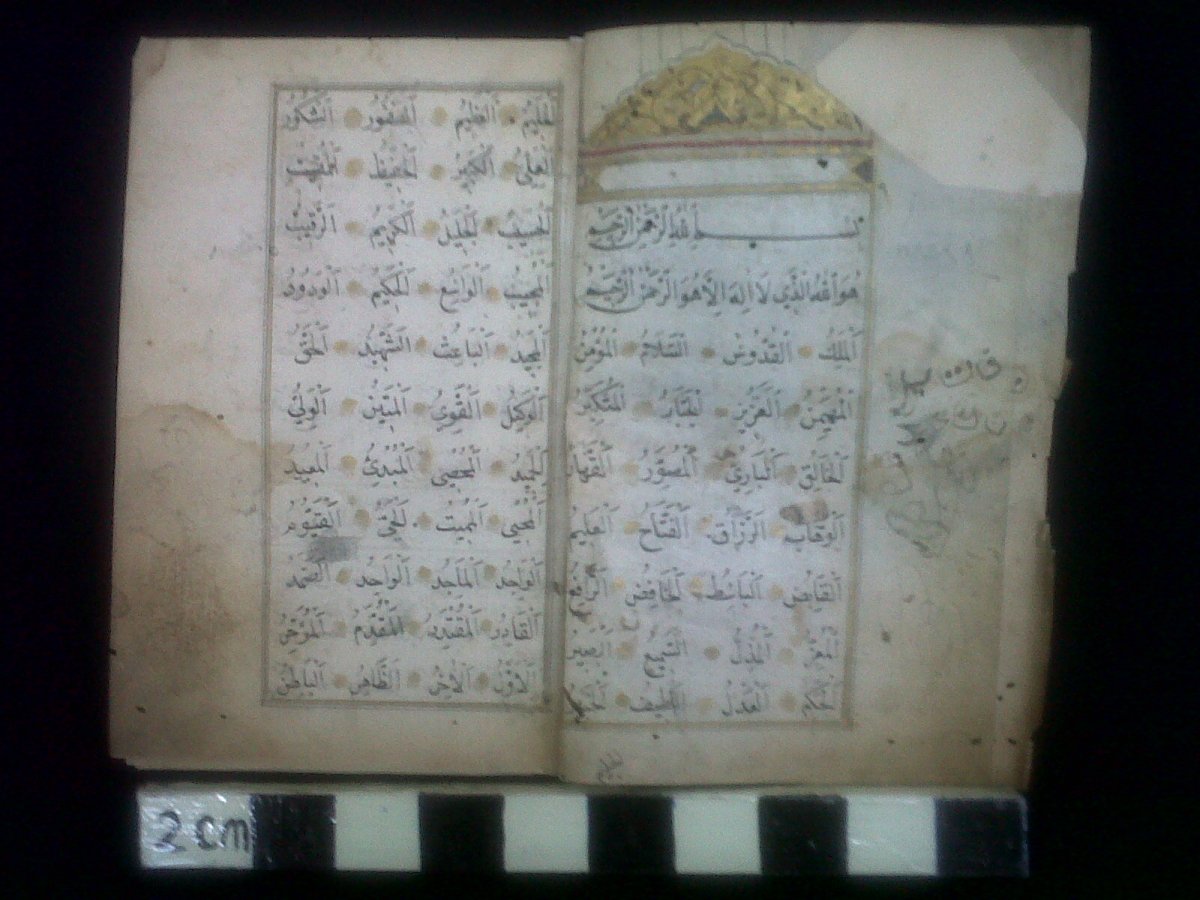 بسم الله الرحمن الرحيم
هُوَ اللهُ الَّذِي لَا اِلهَ اِلَّا هُوَ الرَّحْمٰنُ الرَّحِيمُ
اَلْمَلِكُ اَلْقُدُّوسُ اَلسَّلَامُ اَلْمُؤْمِنُ
اَلْمُهَيْمِنُ اَلْعَزِيزُ اَلْجَبَّارُ اَلْمُتَكَبِّرُ
اَلْخَالِقُ اَلْبَارِئُ اَلْمُصَوِّرُ اَلْقَهَّارُ
اَلْوَهَّابُ اَلرَّزَّاقُ اَلْفَتَّاحُ اَلْعَلِيمُ
اَلْقَابِضُ اَلْبَاسِطُ اَلْخَافِضُ اَلرَّافِعُ
اَلْمُعِزُّ اَلْمُذِلُّ اَلسَّمِيعُ اَلْبَصِيرُ
اَلْحَكَمُ اَلْعَدْلُ اَللَّطِيفُ
اَلْحَلِيمُ اَلْعَظِيمُ اَلْغَفُورُ اَلشَّكُورُ
اَلْعَلِيُّ اَلْكَبِيرُ اَلْحَفِيظُ اَلْمُقِيتُ
اَلْحَسِيبُ اَلْجَلِيلُ اَلْكَرِيمُ اَلرَّقِيبُ
اَلْمُجِيبُ اَلْوَاسِعُ اَلْحَكِيمُ اَلْوَدُودُ
اَلْمَجِيدُ اَلْبَاعِثُ اَلشَّهِيدُ اَلْحَقُّ
اَلْوَكِيلُ اَلْقَوِيُّ اَلْمَتِينُ اَلْوَلِيُّ
اَلْحَمِيدُ اَلْمُحْصِي اَلْمُبْدِئُ اَلْمُعِيدُ
اَلْمُحْيِي اَلْمُمِيتُ اَلْحَيُّ اَلْقَيُّومُ
اَلْوَاجِدُ اَلْمَاجِدُ اَلْوَاحِدُ اَلصَّمَدُ
اَلْقَادِرُ اَلْمُقْتَدِرُ اَلْمُقَدِّمُ اَلْمُؤَخِّرُ
اَلْاَوَّلُ اَلْاٰخِرُ اَلظَّاهِرُ اَلْبَاطِنُ
2 cm